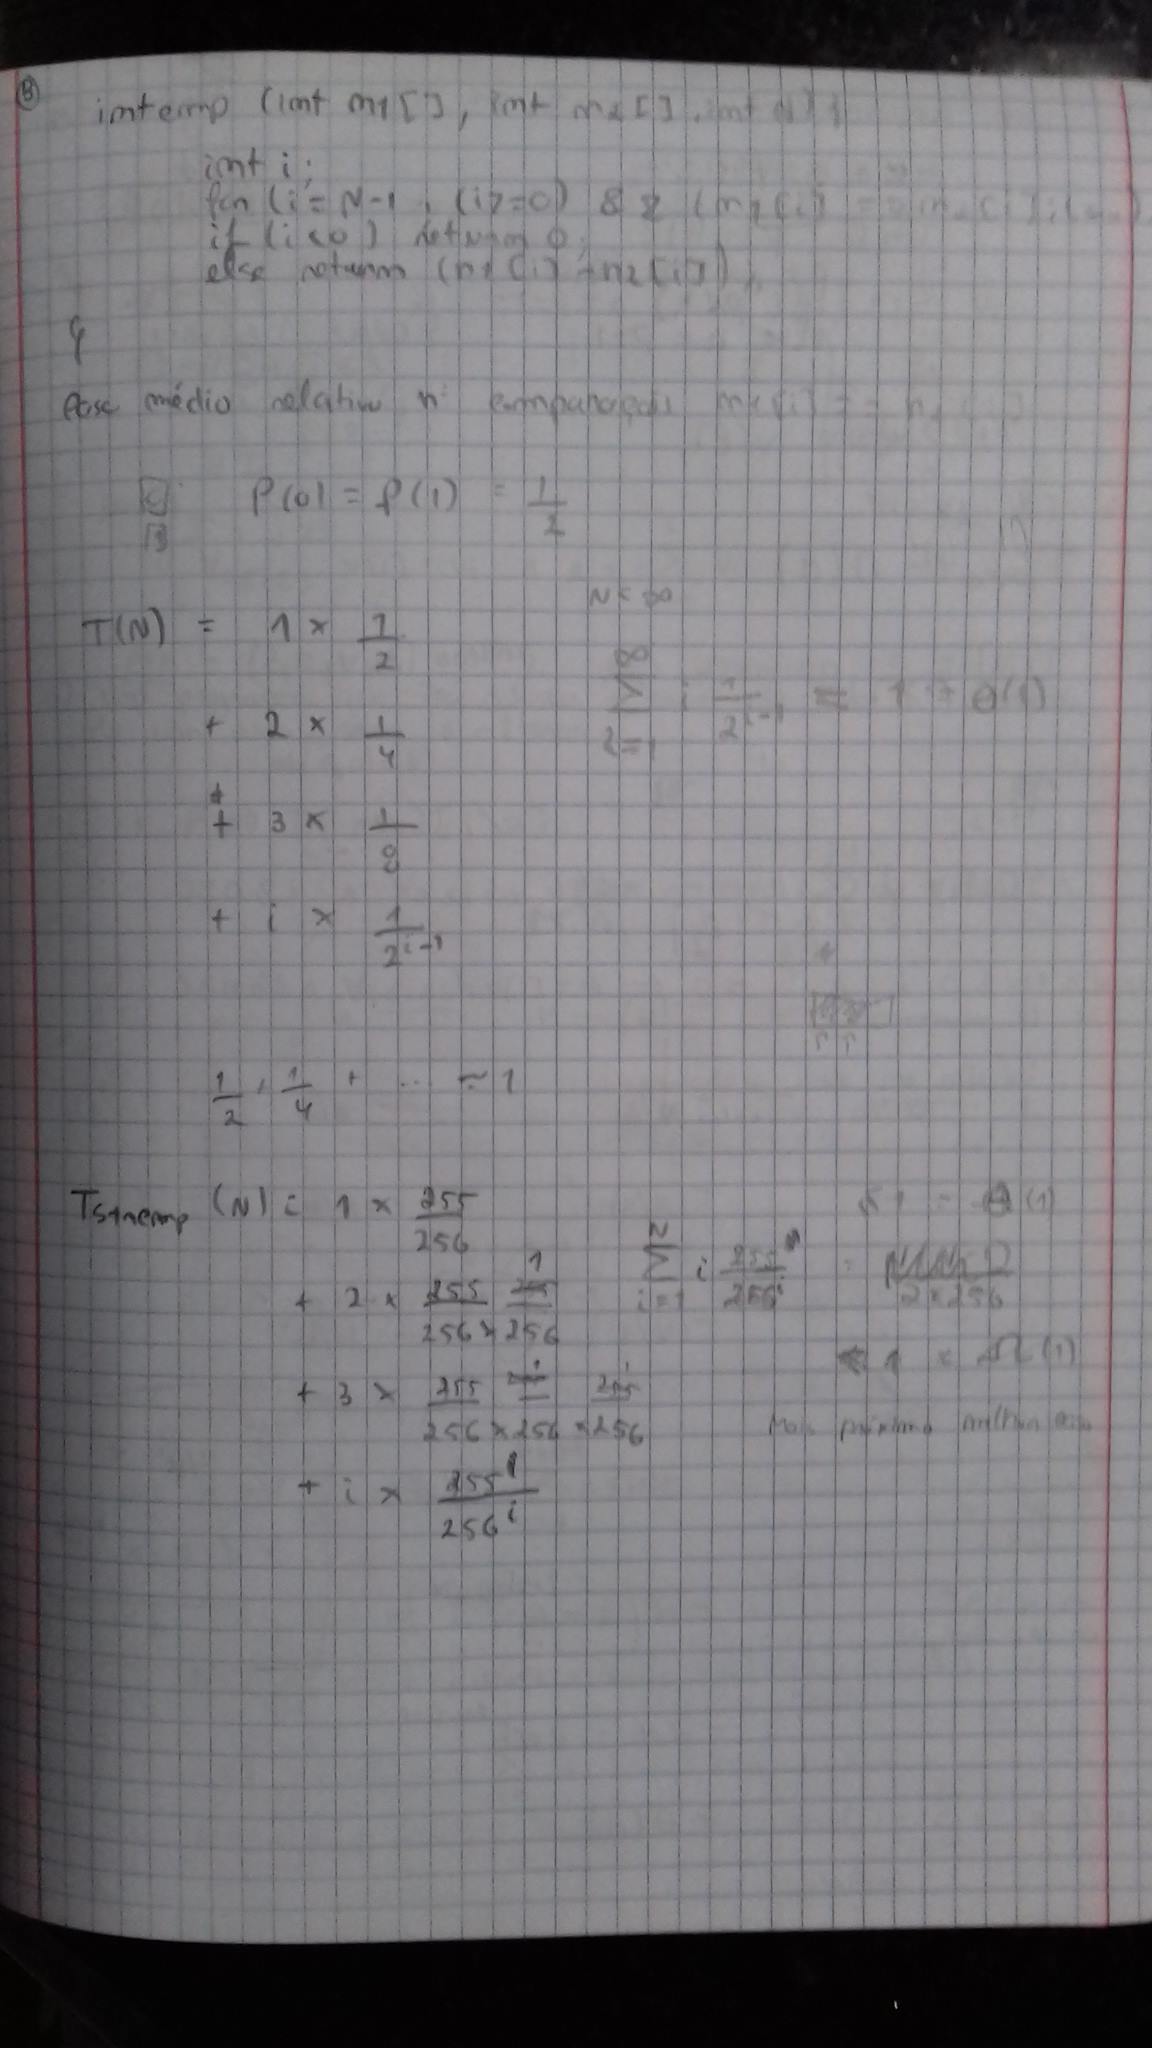 B
intcmp (int n1[], int n2[], int N) {
int i;
for (i = N-1; (i>=0) && (n1[i] ==
if (i<0) return 0;
else return (n1[i] - n2[i]);
}
Caso médio relativo nº comparações n1[i] == n2
P(0) = P(1) = 1/2
N < ∞
T(N) = 1 × 1/2
+ 2 × 1/4
+ 3 × 1/8
+ i × 1/2^{i-1}
∑ i 1/2^{i-1} ≈ 1 → Θ(1)
1/2 + 1/4 + ... ≈ 1
Tstrcmp (N) = 1 × 255/256
+ 2 × 255/256 × 1/256
+ 3 × 255/256 × 1/256 × 1/256
+ i × 255/256^i
∑_{i=1}^{N} i 255/256^i
≤ 1 = Θ(1)
1 = Ω(1)
Mais próximo melhor caso